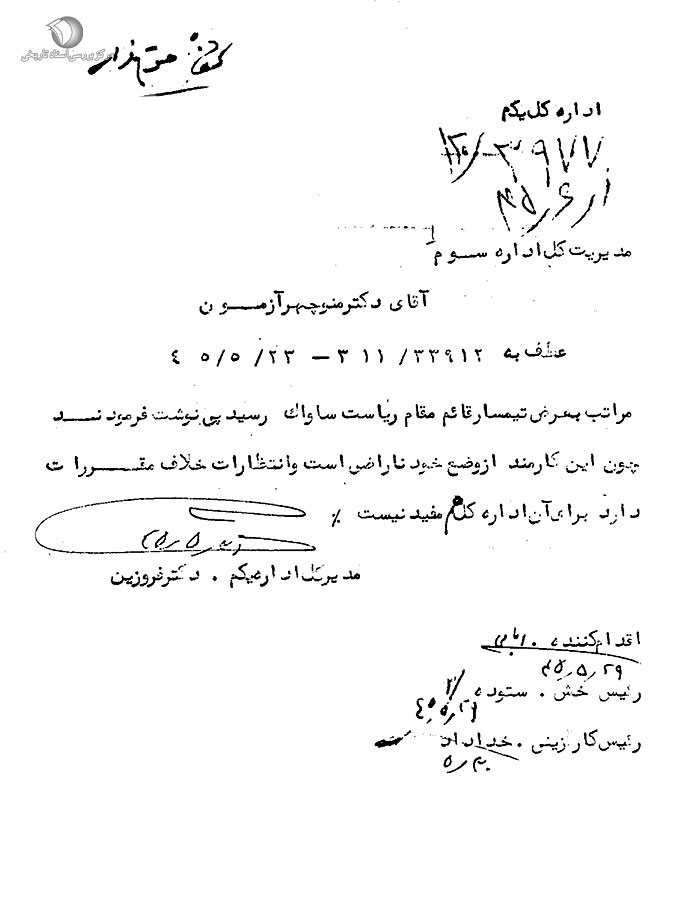 مرکز بررسی اسناد تاریخی
اداره کل یکم
۴۵ر۶ر
مدیریت کل اداره سوم
آقای دکتر منوچهر آزمون
عطف به ۳۳۹۱۲/ ۳۱۱ – ۲۳/ ۵/ ۴۵
مراتب بعرض تیمسار قائم مقام ریاست ساواک رسید پی نوشت فرمودند
چون این کارمند از وضع خود ناراضی است وانتظارات خلاف مقررات
دارد برای آن اداره کل هم مفید نیست ٪
مدیر کل اداره یکم . دکتر فروزین
اقدام کننده .
۴۵ر۵ر۲۹
رئیس بخش . ستوده
رئیس کارگزینی . خداداد